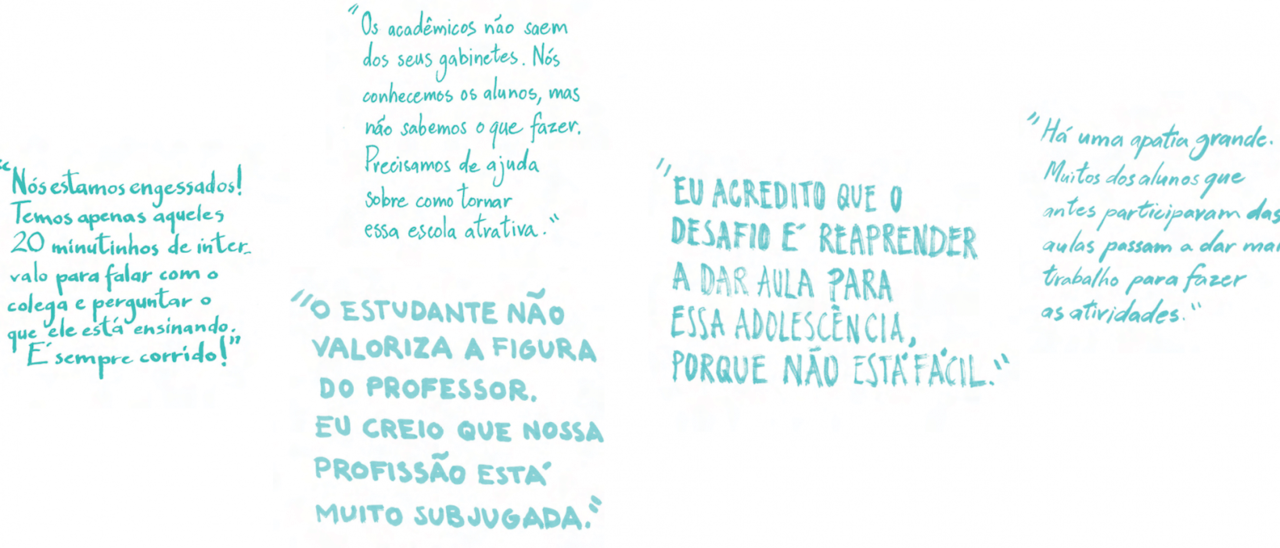 "Nós estamos engessados!
Temos apenas aqueles
20 minutinhos de inter_
valo para falar com o
colega e perguntar o
que ele está ensinando.
É sempre corrido!"
"Os acadêmicos não saem
dos seus gabinetes. Nós
conhecemos os alunos, mas
não sabemos o que fazer.
Precisamos de ajuda
sobre como tornar
essa escola atrativa."
"O ESTUDANTE NÃO
VALORIZA A FIGURA
DO PROFESSOR.
EU CREIO QUE NOSSA
PROFISSÃO ESTÁ
MUITO SUBJUGADA."
"EU ACREDITO QUE O
DESAFIO É REAPRENDER
A DAR AULA PARA
ESSA ADOLESCÊNCIA,
PORQUE NÃO ESTÁ FÁCIL."
"Há uma apatia grande.
Muitos dos alunos que
antes participavam das
aulas passam a dar mai
trabalho para fazer
as atividades."